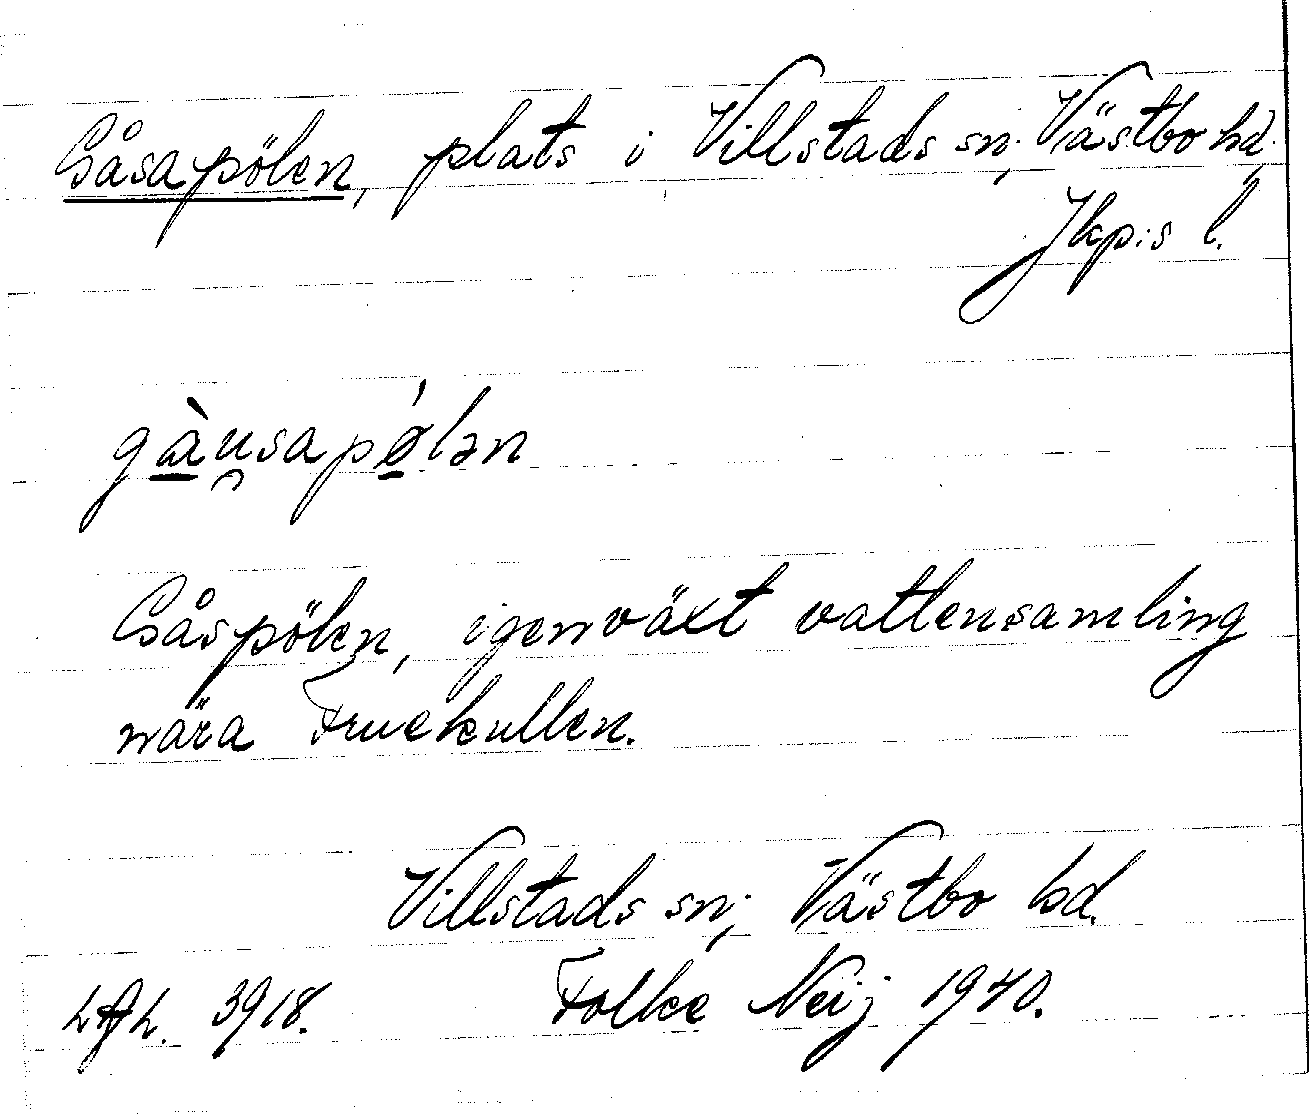 Gåsapölen, plats i Villstads sn, Västbo hd,
Jkp:s l.
gàu̯sapǿlən
Gåspölen, igenväxt vattensamling
nära Fruekullen.
Villstads sn, Västbo hd.
3918. Folke Neij 1940.